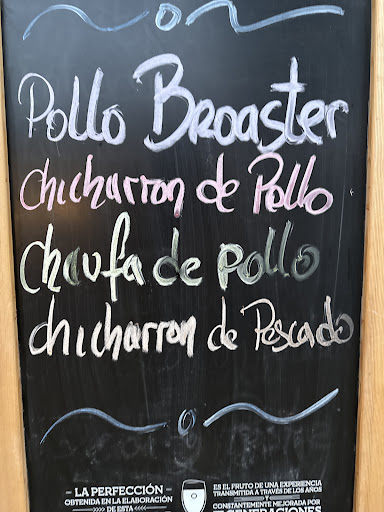 Pollo Broaster
chicharron de Pollo
chaufa de pollo
chicharron de Pescado
LA PERFECCIÓN
OBTENIDA EN LA ELABORACIÓN
DE ESTA
ES EL FRUTO DE UNA EXPERIENCIA
TRANSMITIDA A TRAVÉS DE LOS AÑOS
Y
CONSTANTEMENTE MEJORADA POR
GENERACIONES